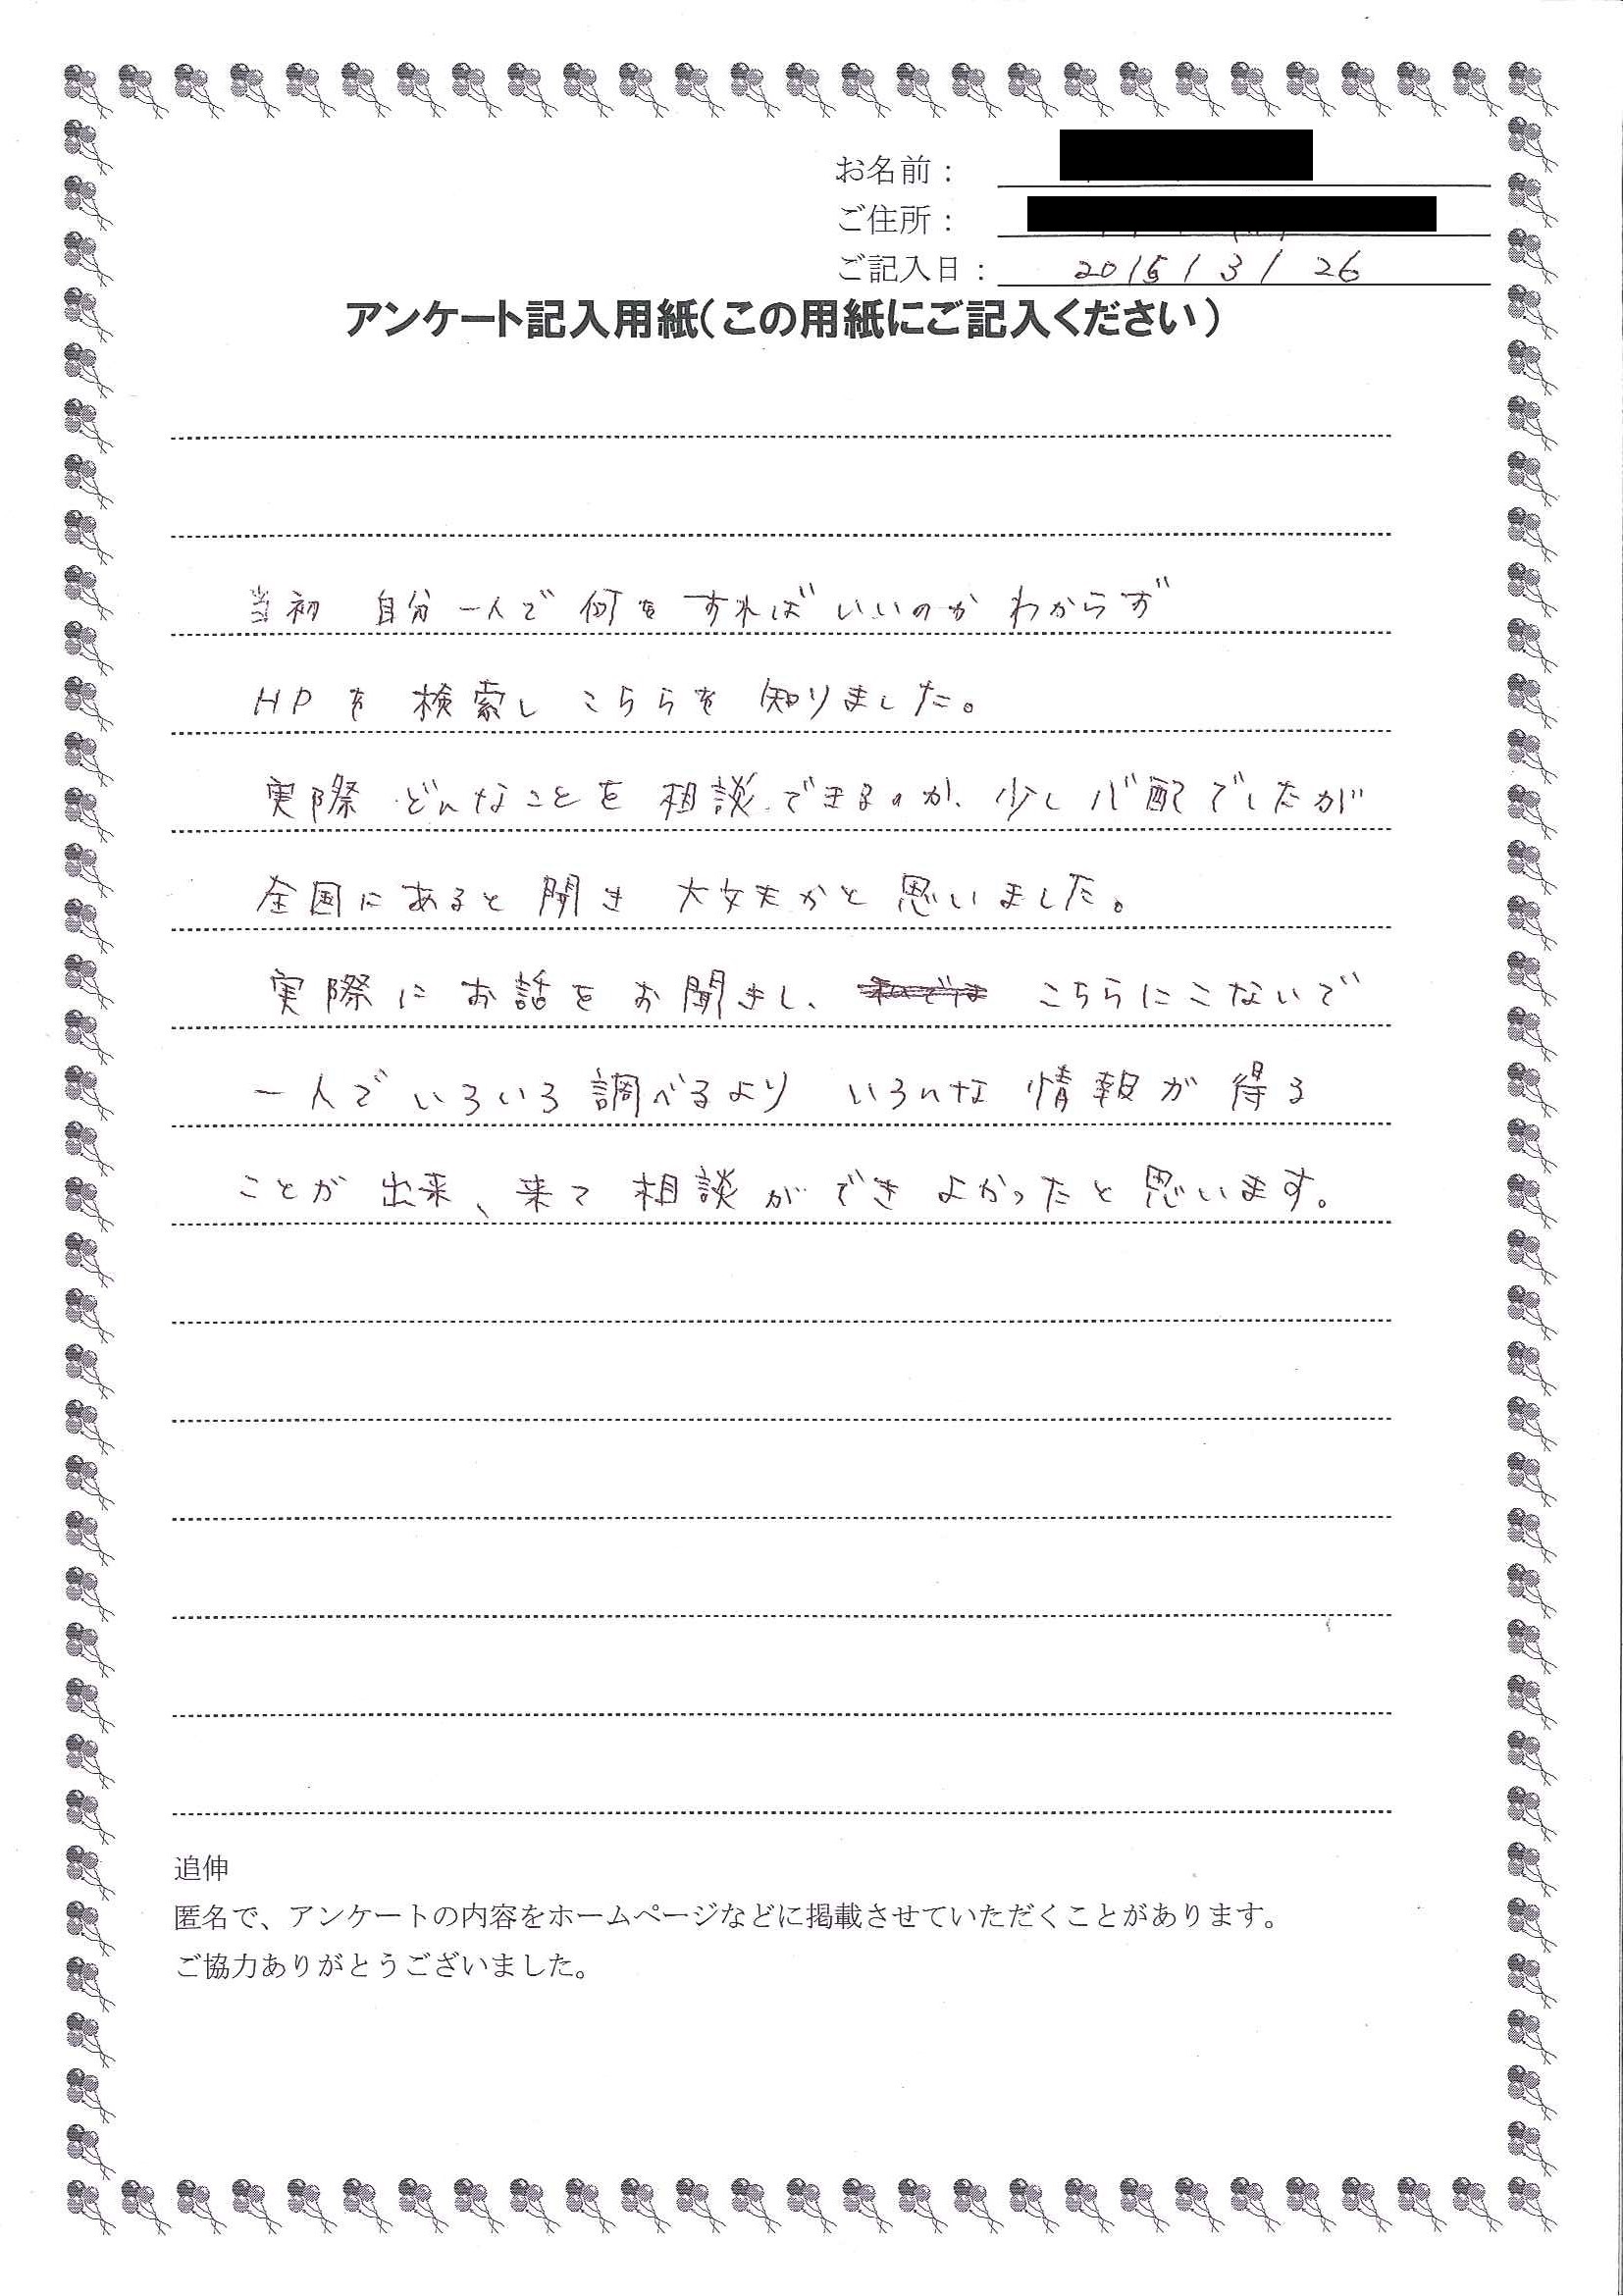 お名前：
ご住所：
ご記入日： 2015/3/26
アンケート記入用紙（この用紙にご記入ください）
当初 自分一人で何をすればいいのか わからず
HPを検索し こちらを知りました。
実際 どんなことを相談できるのか、少し心配でしたが
全国にあると聞き 大丈夫かと思いました。
実際に お話を お聞きし、 こちらにこないで
一人でいろいろ調べるより いろんな情報が得る
ことが出来、来て相談ができよかったと思います。
追伸
匿名で、アンケートの内容をホームページなどに掲載させていただくことがあります。
ご協力ありがとうございました。